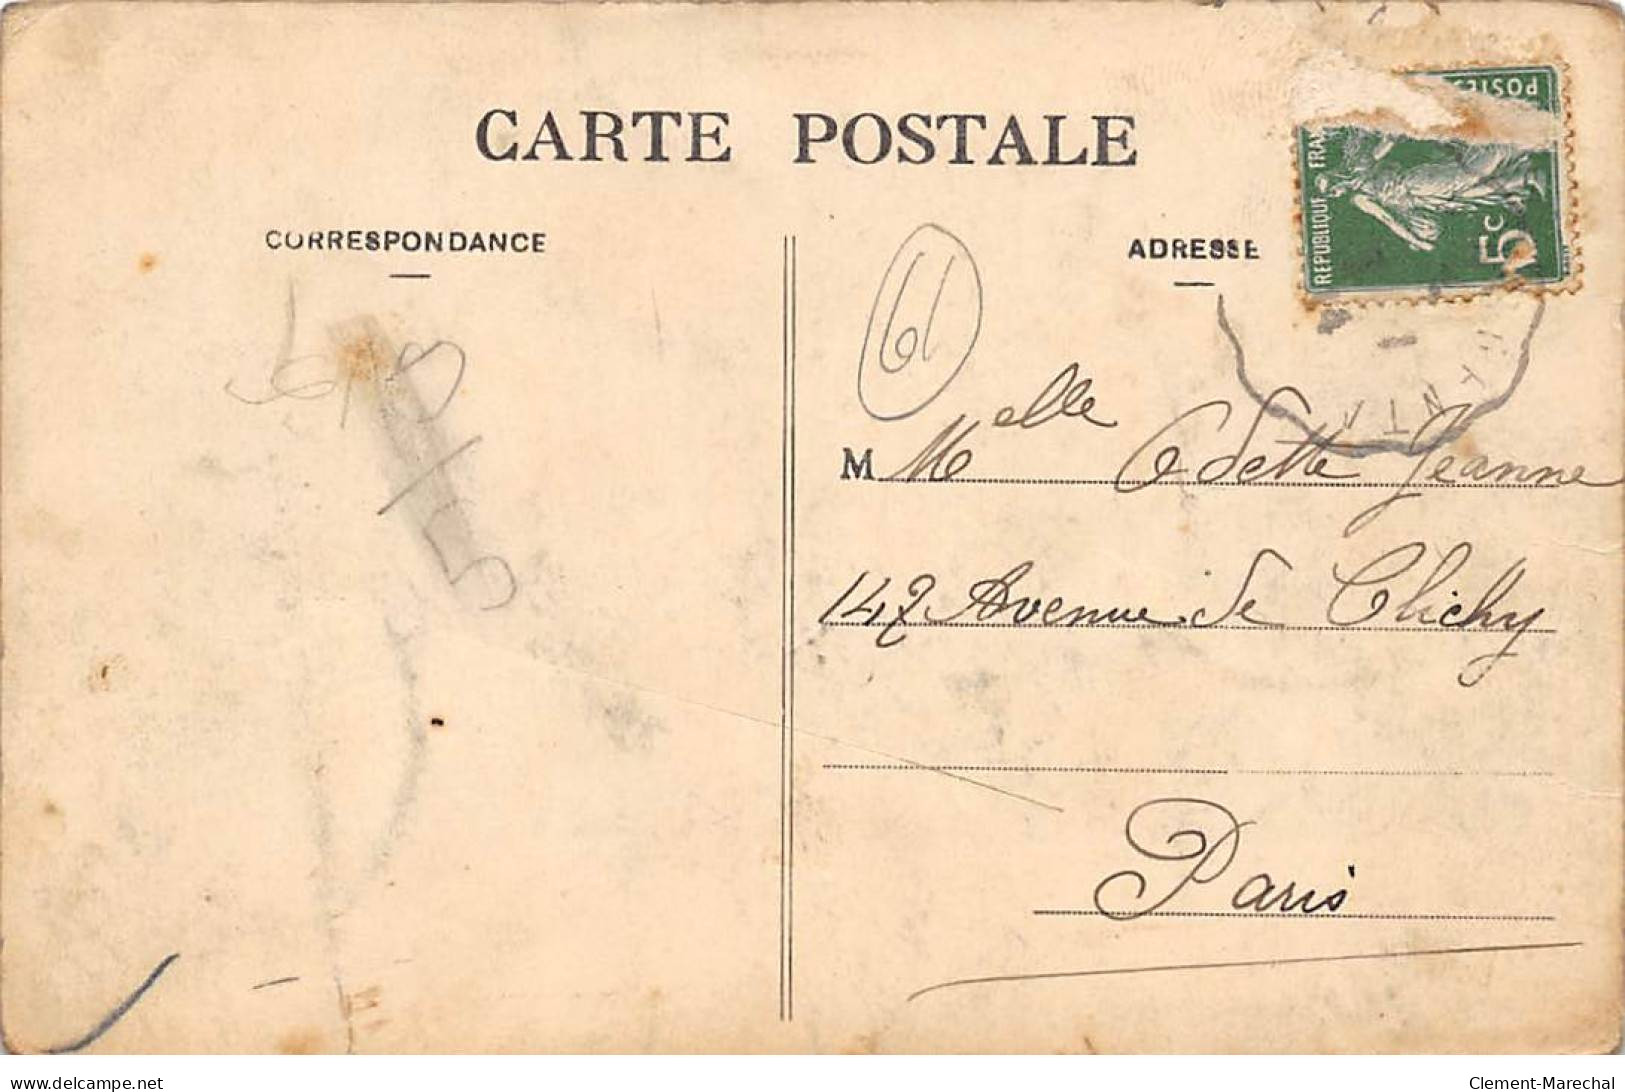 CARTE POSTALE
CORRESPONDANCE
ADRESSE
POSTES
REPUBLIQUE FRA
5c
61
M Melle Odette Jeanne
147 Avenue de Clichy
Paris
www.delcampe.net
Clement-Marechal